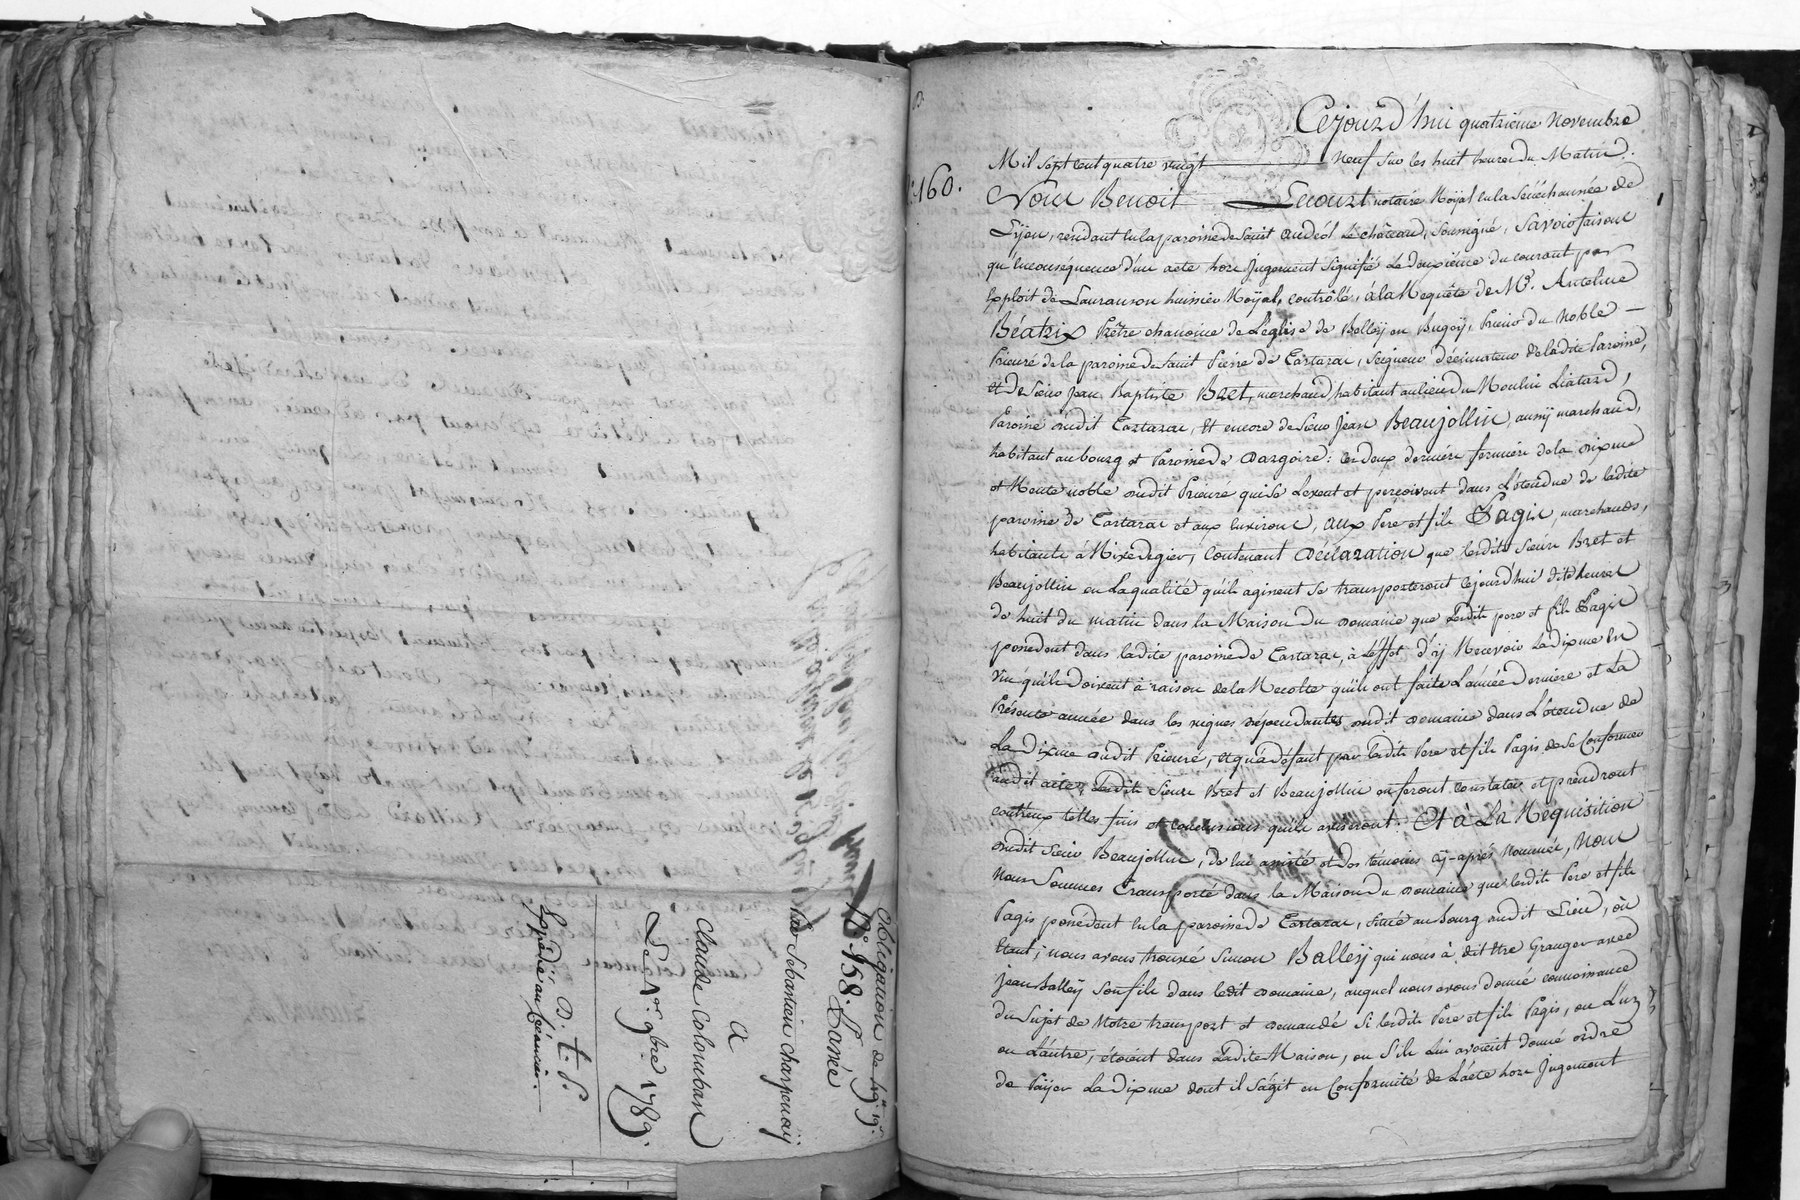 Obligation de
N.° 158. L'année
par Sébastien charpenay
a
Claude Colomban
Le 1er. 9bre 1789.
D. t. S.
Expédié au Créancier.
Cejourd'hui quatrième Novembre
Mil sept cent quatre vingt neuf sur les huit heures du Matin.
N.° 160.
Nous Benoit Lecourt notaire Royal en la Sénéchaussée de
Lyon, rendant en la paroisse de Saint andéol le château, soussigné, savoir faisons
qu'en conséquence d'un acte hors Jugement signifié Le deuxième du courant par
Exploit de Lauranson huissier Royal, contrôlé, à la Requête de Mre. Antelme
Béatrix Prêtre chanoine de l'église de Belleÿ en Bugeÿ, Prieur du Noble
Prieuré de la paroisse de Saint Pierre de Tartaras, seigneur décimateur de ladite Paroisse,
et de Sieur Jean Baptiste Bret, marchand habitant au lieu du Moulin Liatard,
Paroisse dudit Tartaras, Et encore de Sieur Jean Beaujollin, aussÿ marchand,
habitant au bourg et Paroisse de dargoire: ces deux derniers fermiers de la dixme
et Rente noble dudit Prieuré qui se Levent et perçoivent dans l'étendue de ladite
paroisse de Tartaras et aux Environs, aux Pere et fils Pagis, marchands,
habitants à Rivedegier, Contenant Déclaration que lesdits sieurs Bret et
Beaujollin en la qualité qu'ils agissent se transporteront cejourd'hui dites heures
de huit du matin dans la Maison du domaine que lesdits pere et fils Pagis
possedent dans ladite paroisse de Tartaras, à l'effet d'ÿ Recevoir la dixme en
vin qu'ils doivent à raison de la Recolte qu'ils ont faite l'année derniere et La
Présente année dans les vignes dépendantes dudit domaine dans l'étendue de
La Dixme dudit Prieuré, et qu'à défaut par lesdits Pere et fils Pagis de se Conformer
audit acte, lesdits Sieurs Bret et Beaujollin en feront constater et prendront
contr'eux telles fins et conclusions qu'ils aviseront. Et à La Réquisition
dudit Sieur Beaujollin, de lui assisté et des témoins cÿ-après nommés, nous
nous Sommes Transporté dans la Maison du domaine que lesdits Pere et fils
Pagis possédent en la paroisse de Tartaras, située au bourg dudit Lieu, où
étant, nous avons trouvé Simon Balleÿ qui nous à dit être Granger avec
jean Balleÿ son fils dans ledit domaine, auquel nous avons donné connoissance
du Sujet de Notre transport et demandé si lesdits Pere et fils Pagis, ou l'un
ou L'autre, étoient dans Ladite Maison, ou s'ils lui avoient donné ordre
de Païer La Dixme dont il s'agit en Conformité de L'acte hors Jugement